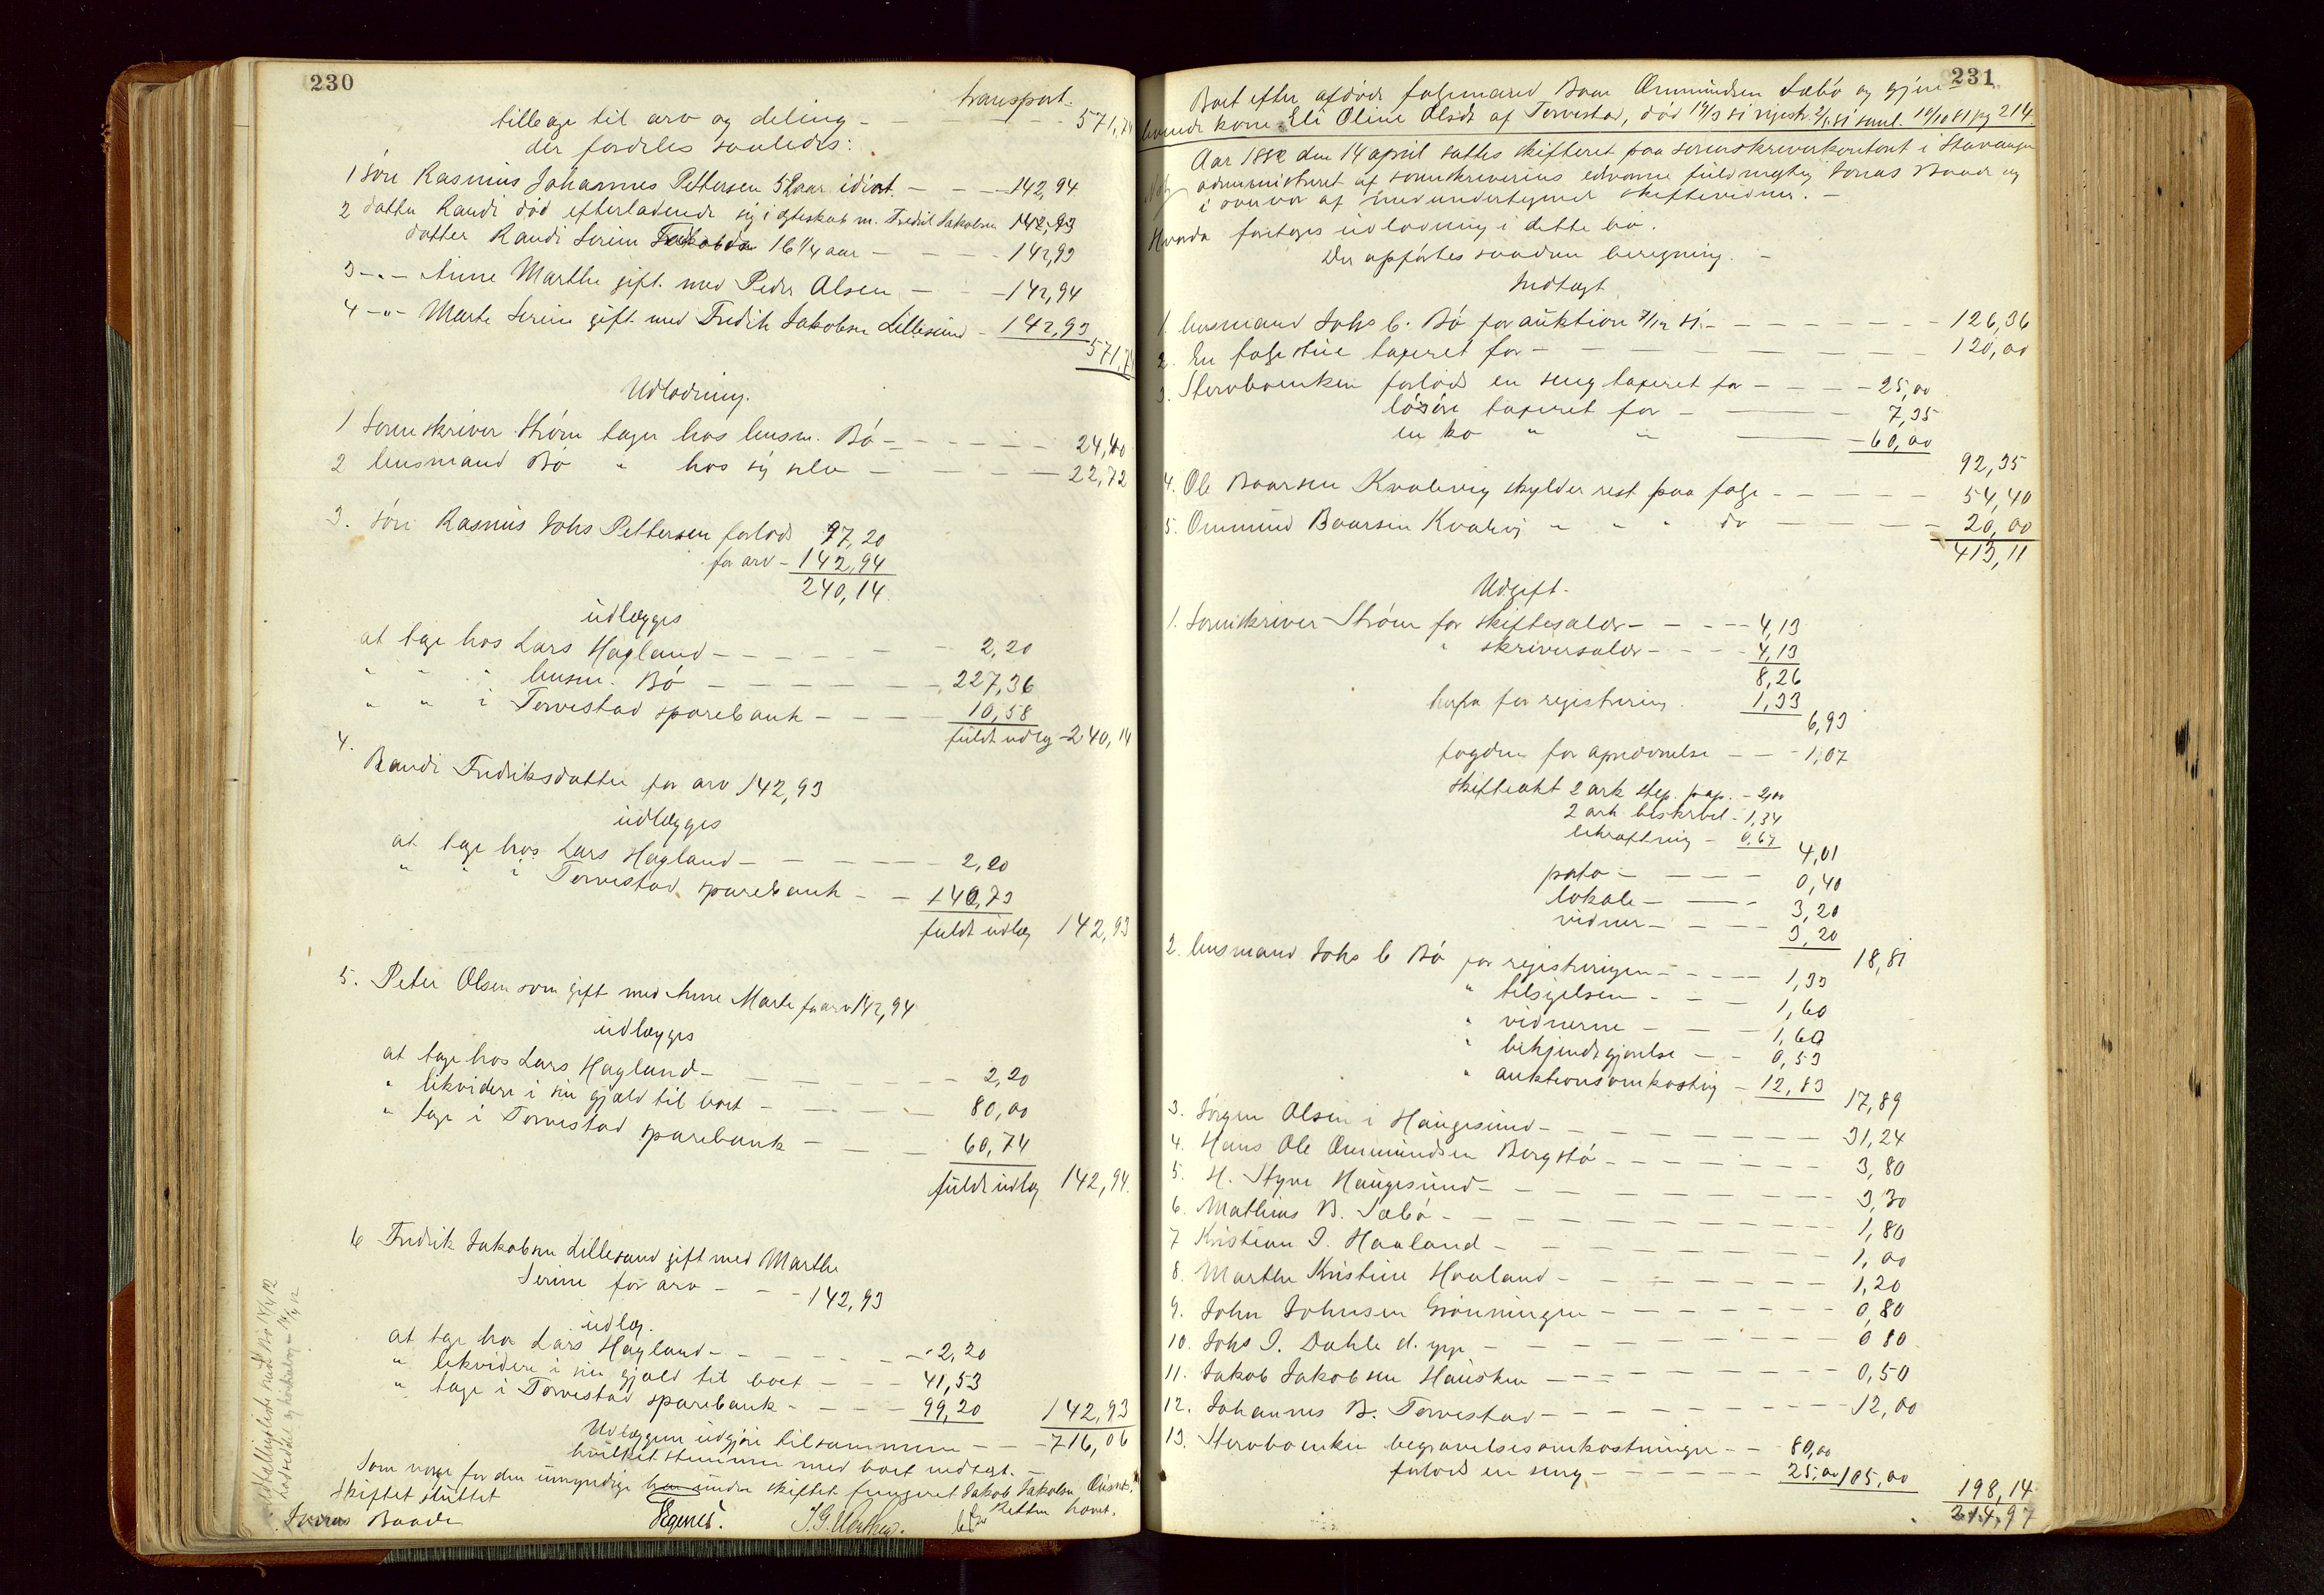 230
transport.
tillbage til arv og deling - 571,74
der fordeles saaledes:
1 søn Rasmus Johannes Pettersen 52 aar idiot - 142,94
2 datter Randi død efterladende sig i egteskab m. Fredrik Jakobsen 142,93
datter Randi Serine 16 1/4 aar - 142,93
3 -"- Anne Marthe gift med Peder Olsen - 142,94
4 -"- Marte Serine gift med Fredrik Jakobsen Lillesund - 142,93
571,74
Udlodning.
1 Sorenskriver Strøm tager hos lensm. Bø - 24,40
2 lensmand Bø " hos sig selv - 22,72
3. søn Rasmus Johs Pettersen forlods 97,20
for arv - 142,94
240,14.
udlægges
at tage hos Lars Hagland - 2,20
" " " lensm. Bø - 227,36
" " i Torvestad sparebank - 10,58
fuldt udlæg - 240,14
4.
Randi Fredriksdatter for arv 142,93
udlægges
at tage hos Lars Hagland - 2,20
" " i Torvestad sparebank - 140,73
fuldt udlæg 142,93
5. Peter Olsen som gift med Anne Marte for arv 142,94
udlægges
at tage hos Lars Hagland - 2,20
" likvidere i sin gjæld til boet - 80,00
" tage i Torvestad sparebank - 60,74
fuldt udlæg 142,94.
6 Fredrik Jakobsen Lillesund gift med Marthe
Serine for arv - 142,93
udlæg.
at tage hos Lars Hagland - 2,20
" likvidere i sin gjæld til boet - 41,53
" tage i Torvestad sparebank - 99,20 142,93
Udlæggene udgjør tilsammen - 716,06
hvilket stemmer med boets indtægt. -
Som verge for den umyndige under skiftet fungeret Jakob Jakobsen
Skiftet sluttet Retten hævet.
Jonas Baade
231
Boet efter afdøde folgemand Baar Ommundsen Sæbø og gjen-
levende kone Eli Oline Olsdr af Torvestad, død 14/3 81 rejistr. 2/5 81 saml. 19/10 81 pg 214.
Aar 1882 den 14 april sattes skifteret paa sorenskriverkontoret i Stavanger
administreret af sorenskriverens edsvorne fuldmægtig Jonas Baade og
i overvær af medundertegnede skiftevidner. -
Hvorda foretages udlodning i dette bo.
Der opførtes saadan beregning. -
Indtægt
1. lensmand Johs C. Bø for auktion 7/12 81. - 126,36
2. En folgestue taxeret for - 120,00
3. Sterboenken forlods en seng taxeret for - 25,00
løsøre taxeret for - 7,35
en ko " " - 60,00
92,35
4. Ole Baarsen Kvalevig skylder rest paa folge - 54,40
5. Ommund Baarsen Kvalevig " " " do - 20,00
413,11
Udgift.
1. Sorenskriver Strøm for skiftesalær - 4,13
" skriversalær - 4,13
8,26
herfra for rejistrering. 1,33
6,93
fogden for apnævnelse - 1,07
skifteakt 2 ark step. pap. - 2,00
2 ark beskrivel - 1,34
bekræftning - 0,67
4,01
porto - 0,40
lokale - 3,20
vidner - 3,20
18,81
2. lensmand Johs C Bø for rejistreringen - 1,33
" tilsigelsen - 1,60
" vidnerne - 1,60
" bekjendtgjørelse - 0,53
" auktionsomkostning - 12,83 17,89
3. Jørgen Olsen i Haugesund - 31,24
4. Hans Ole Ommundsen Bergstø - 3,80
5. H. Styve Haugesund - 3,30
6. Mathias B. Sæbø - 1,80
7 Kristian J. Haaland - 1,00
8. Marthe Kristine Haaland - 1,20
9. John Johnsen Grønningen - 0,80
10. Johs J. Dahle - 0 80
11. Jakob Jakobsen Hausken - 0,50
12. Johannes B. Torvestad - 12,00
13. Sterboenken begravelsesomkostninger - 80,00
forlods en seng - 25,00 105,00
198,14
214,97